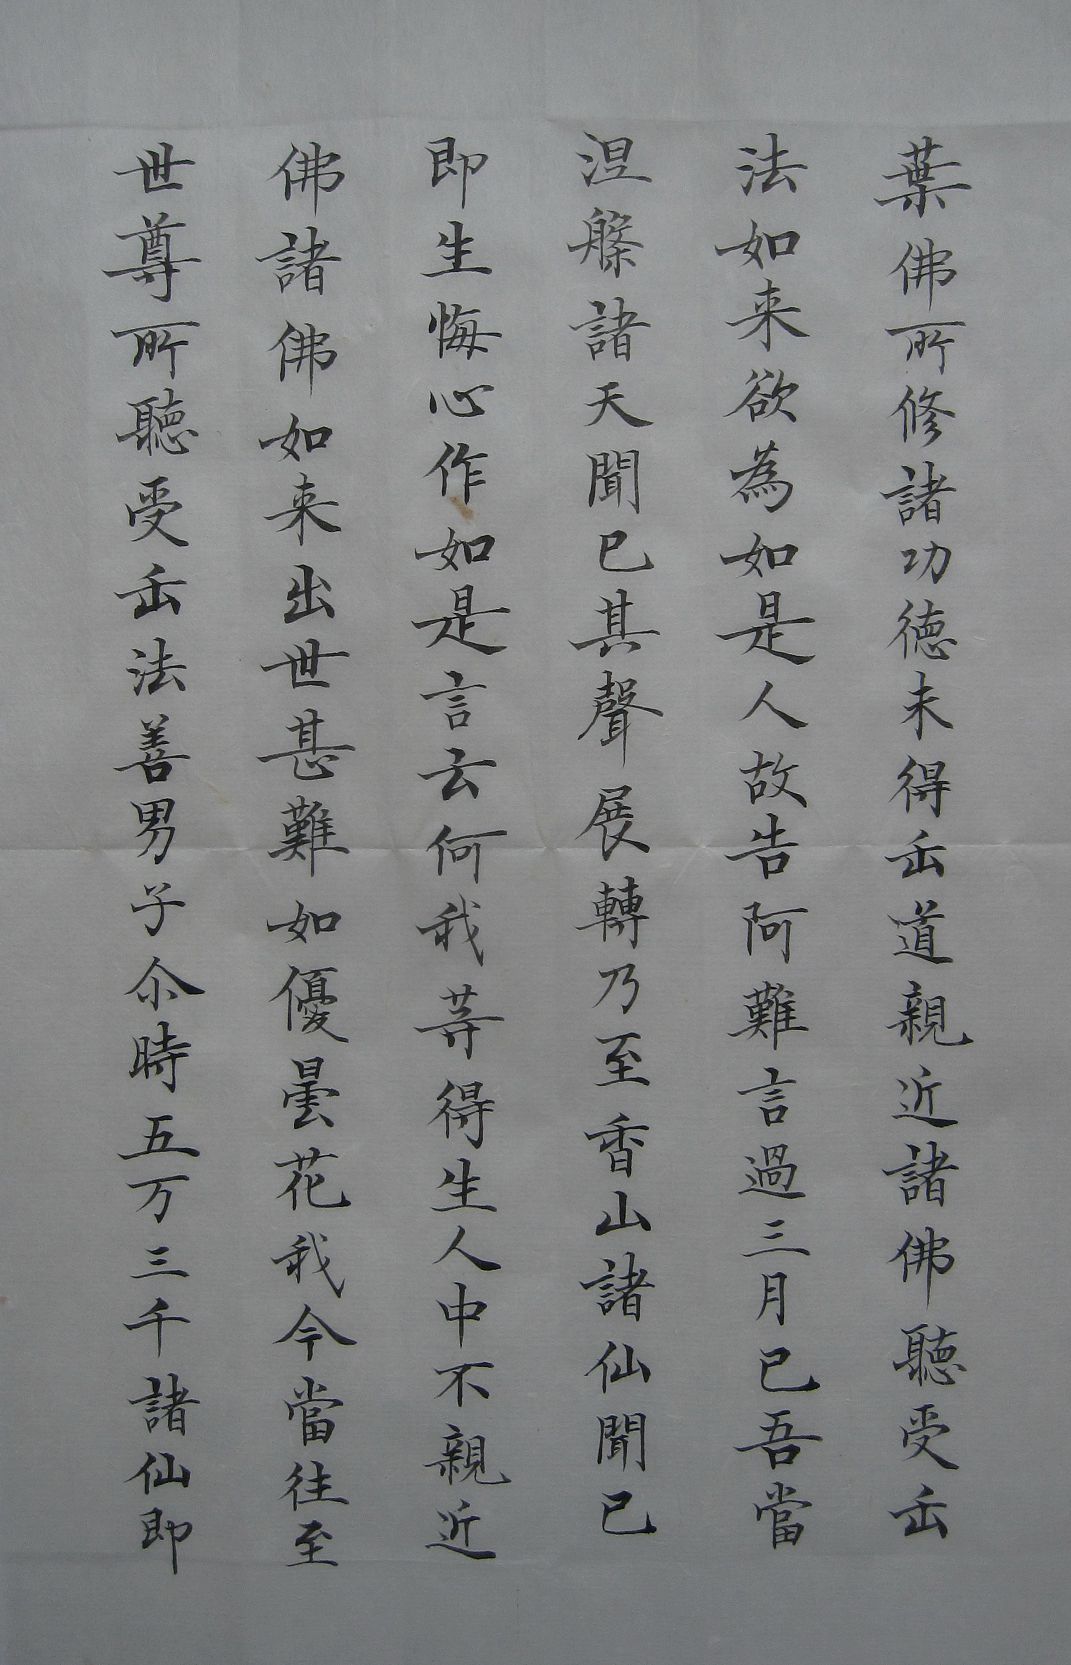 葉佛所修諸功德未得𠙺道親近諸佛聽受𠙺
法如来欲為如是人故告阿難言過三月已吾當
涅槃諸天聞已其聲展轉乃至香山諸仙聞已
即生悔心作如是言云何我等得生人中不親近
佛諸佛如来出世甚難如優曇花我今當往至
世尊所聽受𠙺法善男子尒時五万三千諸仙即